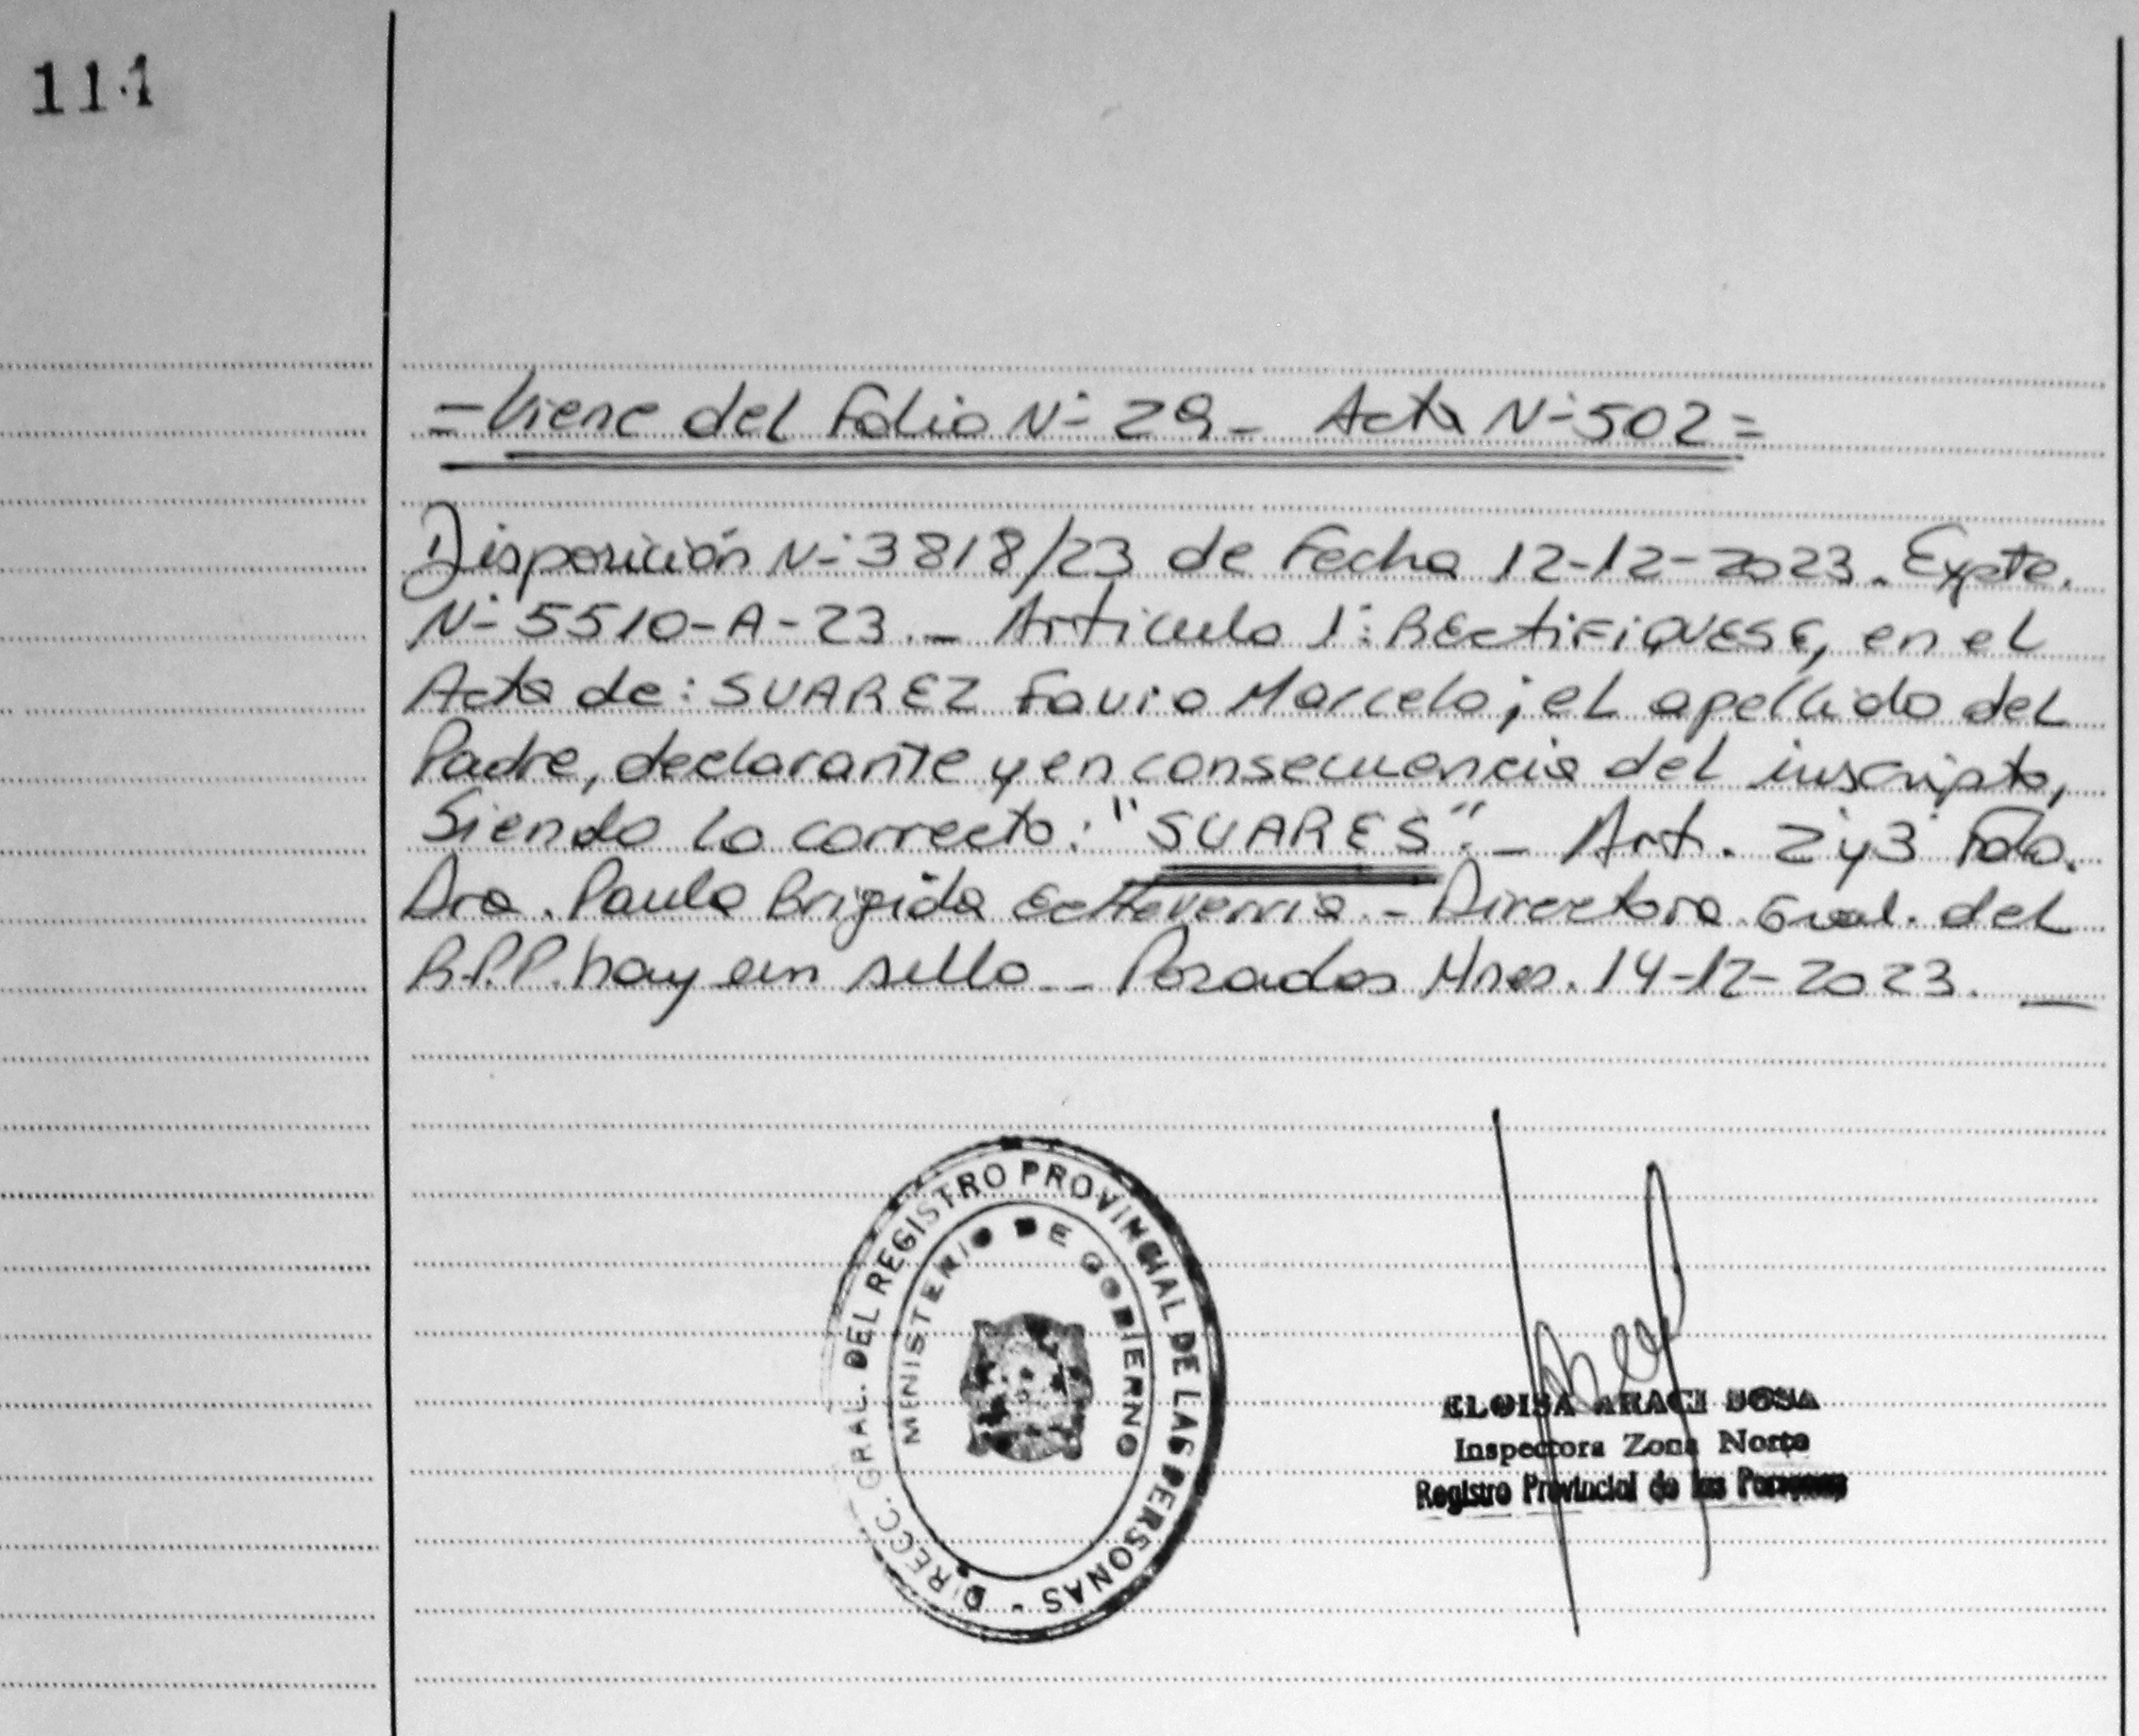 111
=Viene del Folio N° 29- Acta N°502=
Disposición N°3818/23 de Fecha 12-12-2023. Expte.
N°5510-A-23.- Articulo 1°: RECTIFIQUESE, en el
Acta de: SUAREZ Favio Marcelo; el apellido del
Padre, declarante y en consecuencia del inscripto,
Siendo lo correcto: "SUARES".- Art. 2° y 3° Fdo.
Dra. Paula Brigida Echeverria.- Directora Gral. del
R.P.P. hay un sello.- Posadas Mnes. 14-12-2023.
DIRECC. GRAL. DEL REGISTRO PROVINCIAL DE LAS PERSONAS -
MINISTERIO DE GOBIERNO
ELOISA ARACI SOSA
Inspectora Zona Norte
Registro Provincial de las Personas